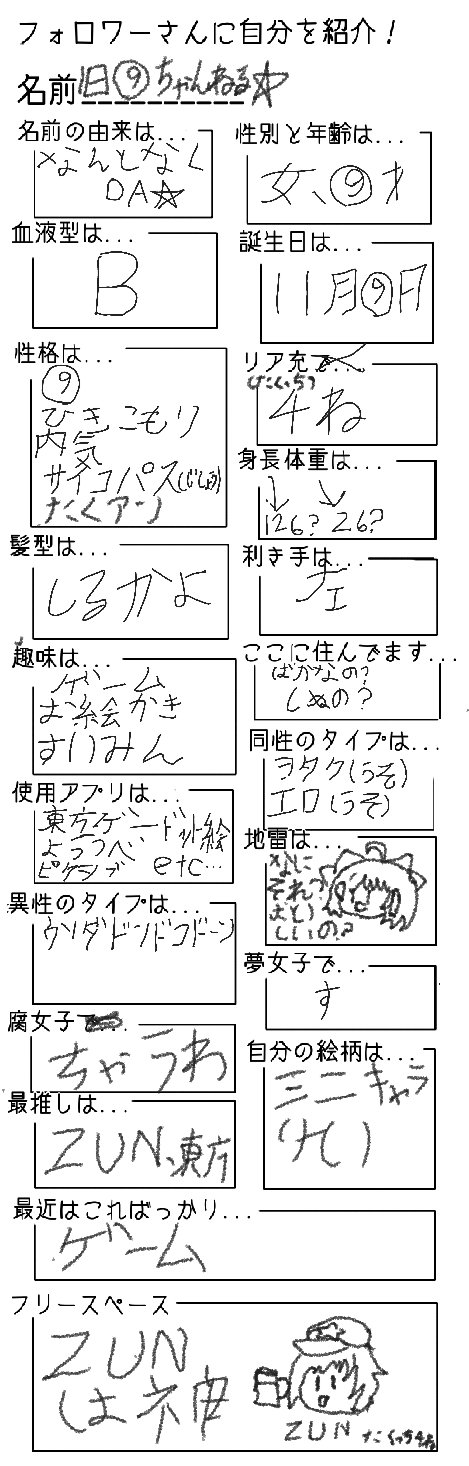 フォロワーさんに自分を紹介！
名前 旧⑨ちゃんねる☆
名前の由来は...
なんとなく
DA☆
性別と年齢は...
女、⑨才
血液型は...
B
誕生日は...
11月⑨日
性格は...
⑨
ひきこもり
内気
サイコパス
リア充で...
4ね
身長体重は...
126? 26?
髪型は...
しるかよ
利き手は...
ナエ
趣味は...
ゲーム
お絵かき
すいみん
ここに住んでます...
ばかなの?
しぬの?
同性のタイプは...
ヲタク(うそ)
エロ(うそ)
使用アプリは...
東方ゲー ドット絵
ようつべ
ピクシブ etc...
地雷は...
なに
それ?
おいしいの?
異性のタイプは...
ウンダドンドコドーン
夢女子で...
す
腐女子
ちゃうわ
自分の絵柄は...
ミニキャラ
最推しは...
ZUN、東方
最近はこればっかり...
ゲーム
フリースペース
ZUN
は神
ZUN